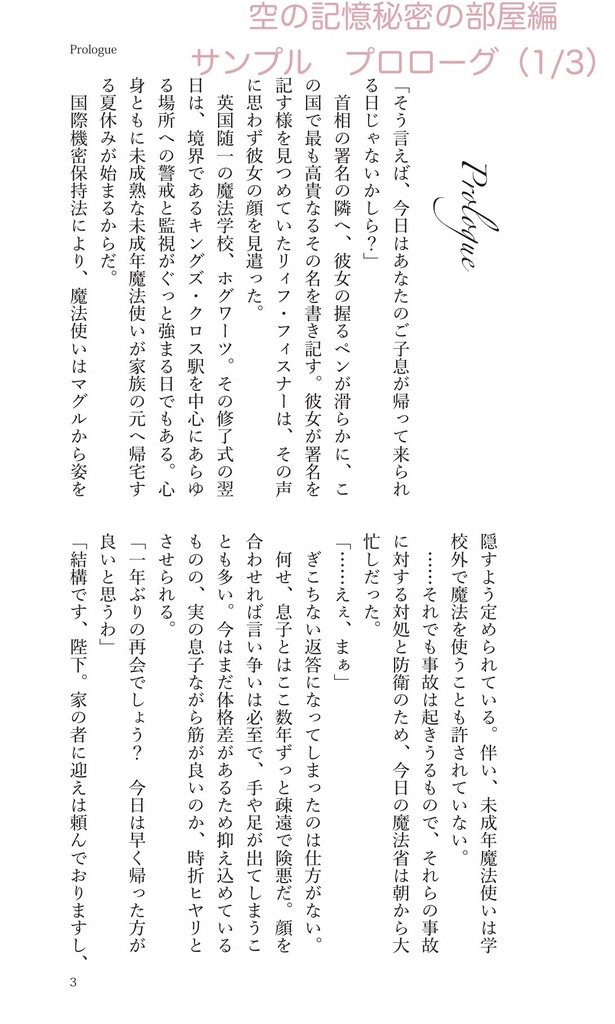 空の記憶秘密の部屋編
サンプル　プロローグ（1/3）
Prologue
Prologue
「そう言えば、今日はあなたのご子息が帰って来られ
る日じゃないかしら？」
　首相の署名の隣へ、彼女の握るペンが滑らかに、こ
の国で最も高貴なるその名を書き記す。彼女が署名を
記す様を見つめていたリィフ・フィスナーは、その声
に思わず彼女の顔を見遣った。
　英国随一の魔法学校、ホグワーツ。その修了式の翌
日は、境界であるキングズ・クロス駅を中心にあらゆ
る場所への警戒と監視がぐっと強まる日でもある。心
身ともに未成熟な未成年魔法使いが家族の元へ帰宅す
る夏休みが始まるからだ。
　国際機密保持法により、魔法使いはマグルから姿を
隠すよう定められている。伴い、未成年魔法使いは学
校外で魔法を使うことも許されていない。
　……それでも事故は起きうるもので、それらの事故
に対する対処と防衛のため、今日の魔法省は朝から大
忙しだった。
「……えぇ、まぁ」
　ぎこちない返答になってしまったのは仕方がない。
　何せ、息子とはここ数年ずっと疎遠で険悪だ。顔を
合わせれば言い争いは必至で、手や足が出てしまうこ
とも多い。今はまだ体格差があるため抑え込めている
ものの、実の息子ながら筋が良いのか、時折ヒヤリと
させられる。
「一年ぶりの再会でしょう？　今日は早く帰った方が
良いと思うわ」
「結構です、陛下。家の者に迎えは頼んでおりますし、
3